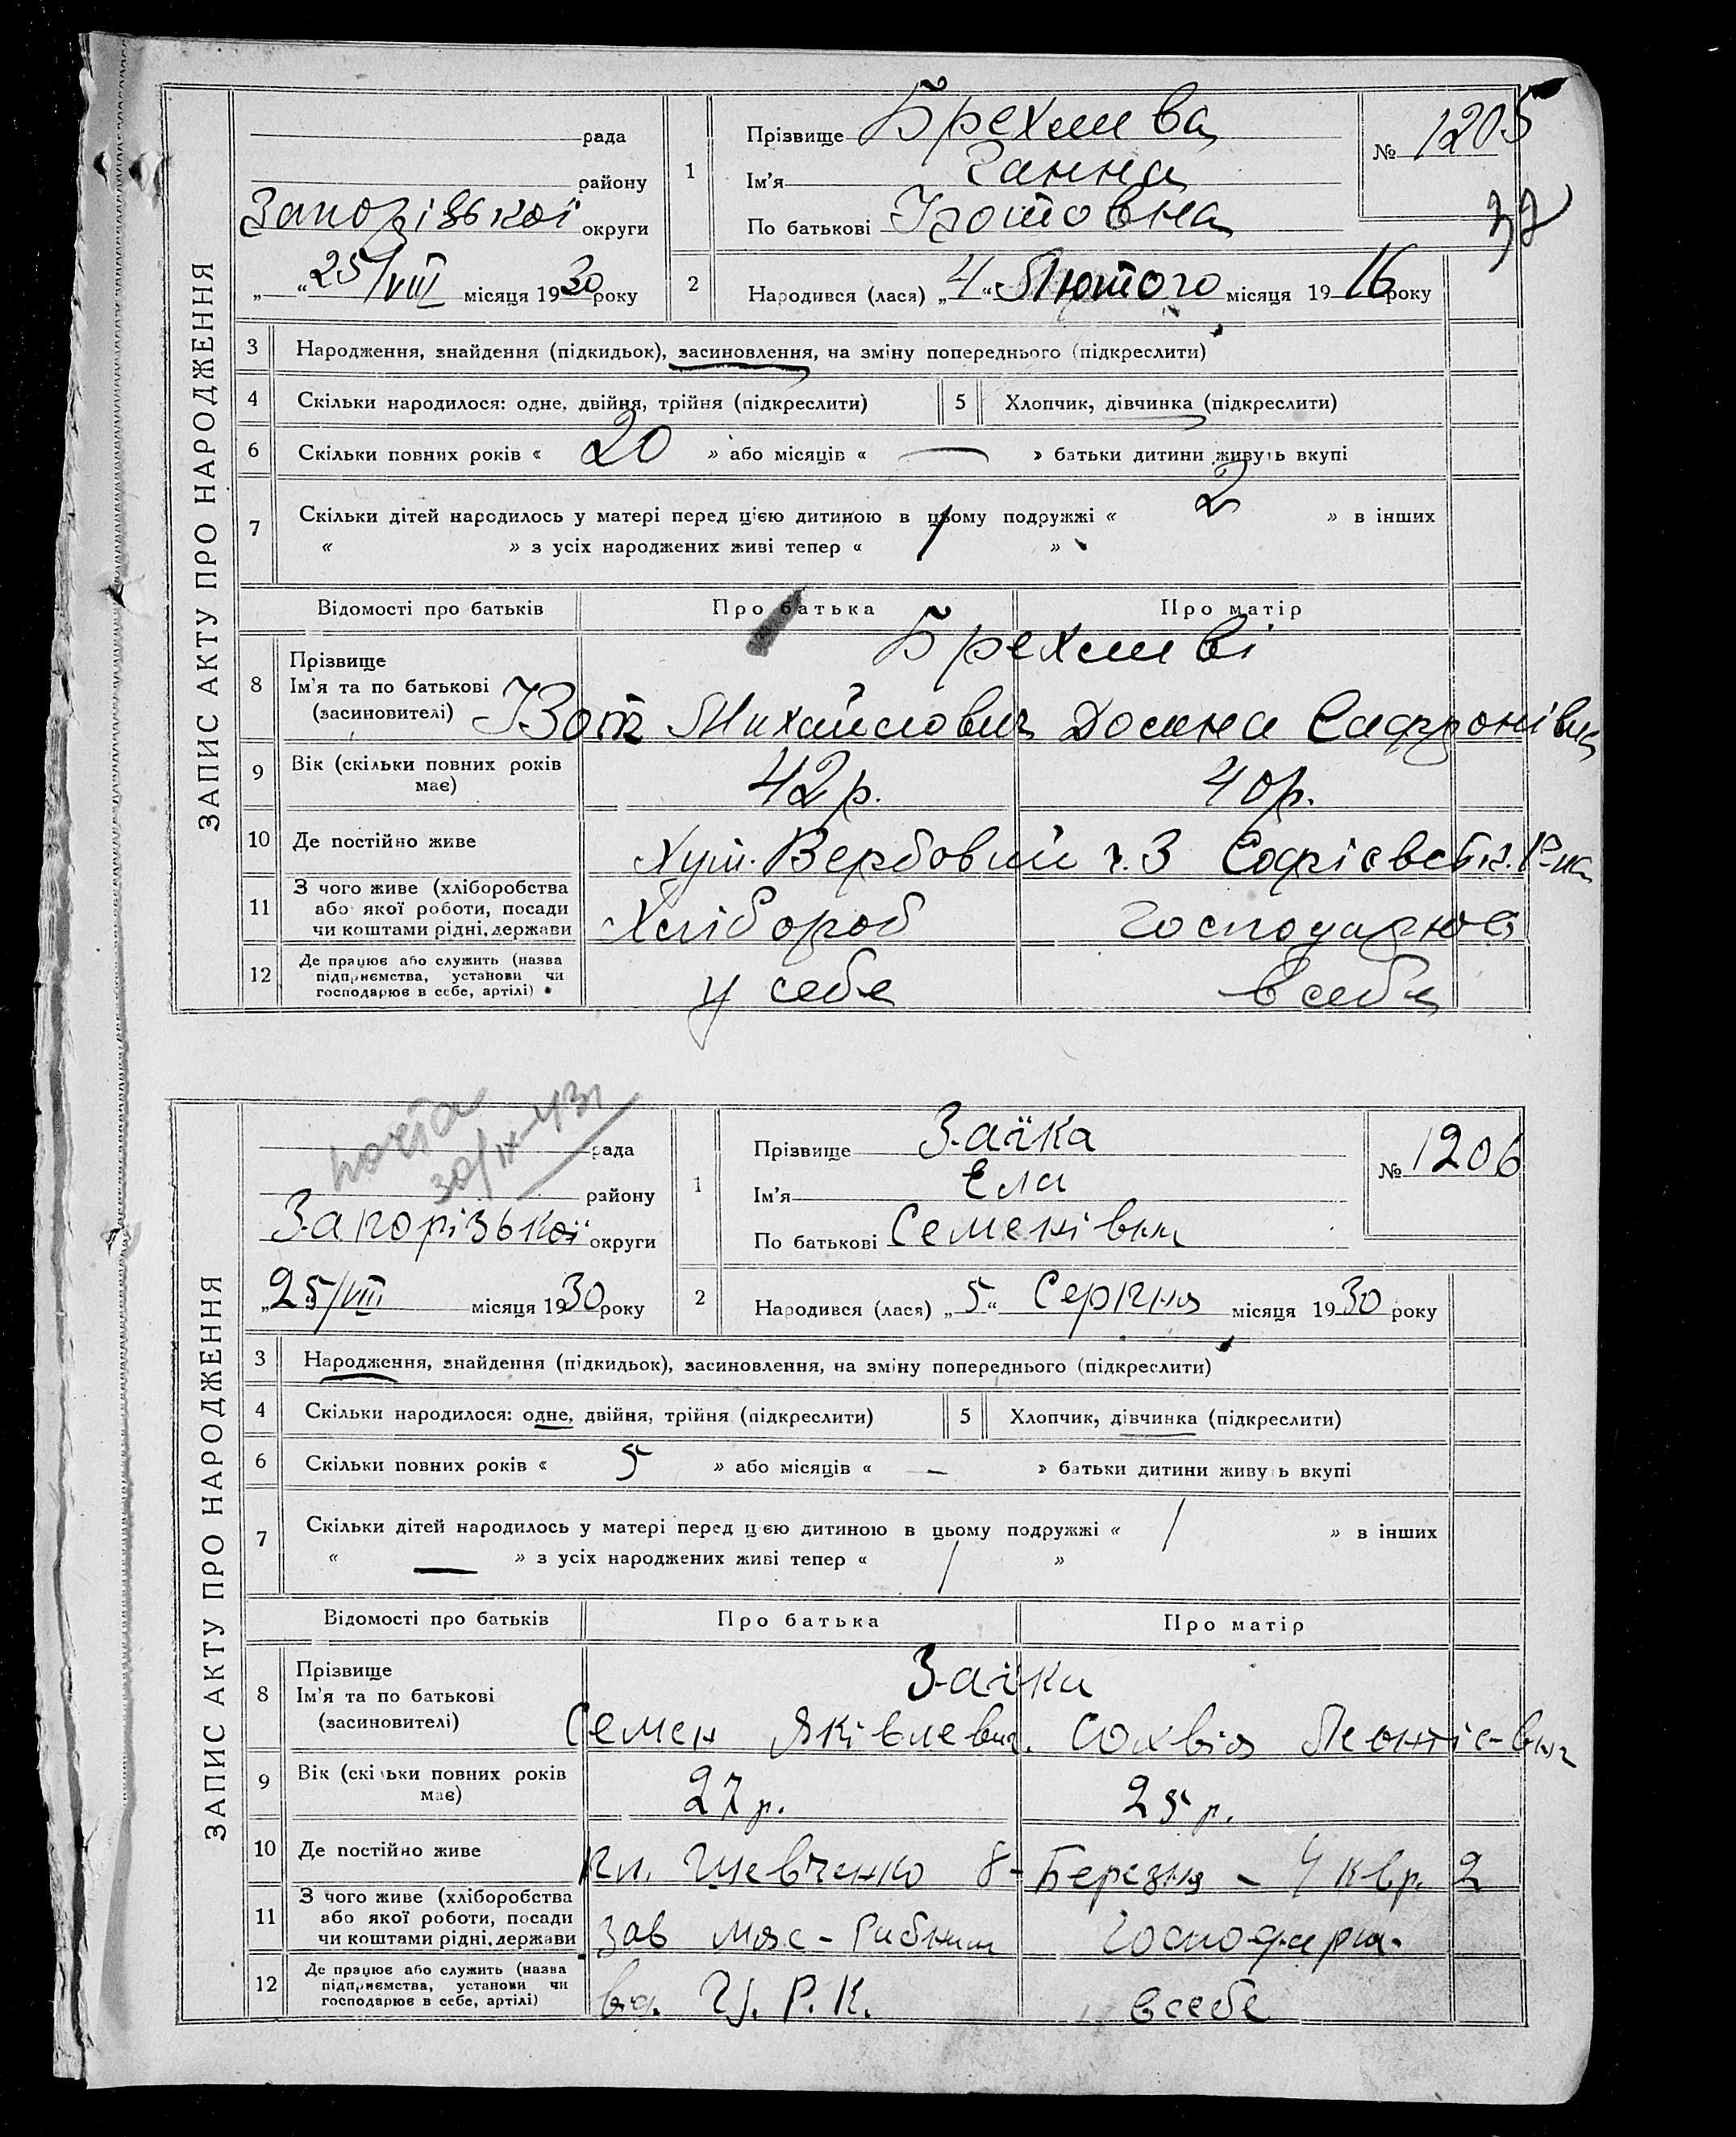 ЗАПИС АКТУ ПРО НАРОДЖЕННЯ
рада
району
Запорізької округи
„ “ 25/VIII місяця 1930 року
1
Прізвище
Ім’я Ганна
По батькові
№ 1205
2 Народився (лася) „4“ Лютого місяця 1916 року
3 Народження, знайдення (підкидьок), засиновлення, на зміну попереднього (підкреслити)
4 Скільки народилося: одне, двійня, трійня (підкреслити) 5 Хлопчик, дівчинка (підкреслити)
6 Скільки повних років « 20 » або місяців « — » батьки дитини живуть вкупі
7 Скільки дітей народилось у матері перед цією дитиною в цьому подружжі « 2 » в інших
« » з усіх народжених живі тепер « 1 »
Відомості про батьків Про батька Про матір
8 Прізвище
Ім’я та по батькові
(засиновителі) Михайлович
9 Вік (скільки повних років має) 42 р. 40 р.
10 Де постійно живе Хут. Вербовий ч. 3 Софієвськ. Р-на
11 З чого живе (хліборобства
або якої роботи, посади
чи коштами рідні, держави Хлібороб
12 Де працює або служить (назва
підприємства, установи чи
господарює в себе, артілі) у себе в себе
ЗАПИС АКТУ ПРО НАРОДЖЕННЯ
30/IX-43
рада
району
Запорізької округи
„25/VIII місяця 1930 року
1
Прізвище Заїка
Ім’я Ела
По батькові Семенівна
№ 1206
2 Народився (лася) „5“ Серпня місяця 1930 року
3 Народження, знайдення (підкидьок), засиновлення, на зміну попереднього (підкреслити)
4 Скільки народилося: одне, двійня, трійня (підкреслити) 5 Хлопчик, дівчинка (підкреслити)
6 Скільки повних років « 5 » або місяців « — » батьки дитини живуть вкупі
7 Скільки дітей народилось у матері перед цією дитиною в цьому подружжі « 1 » в інших
« — » з усіх народжених живі тепер « 1 »
Відомості про батьків Про батька Про матір
8 Прізвище Заїка
Ім’я та по батькові
(засиновителі) Семен Яківлевич. Сохвія Леонтіє-вна
9 Вік (скільки повних років має) 27 р. 25 р.
10 Де постійно живе Шевченко 8-Березня - 4 квр. 2
11 З чого живе (хліборобства
або якої роботи, посади
чи коштами рідні, держави Зав Мяс-Рибним
12 Де працює або служить (назва
підприємства, установи чи
господарює в себе, артілі) від. Ц. Р. К. в себе